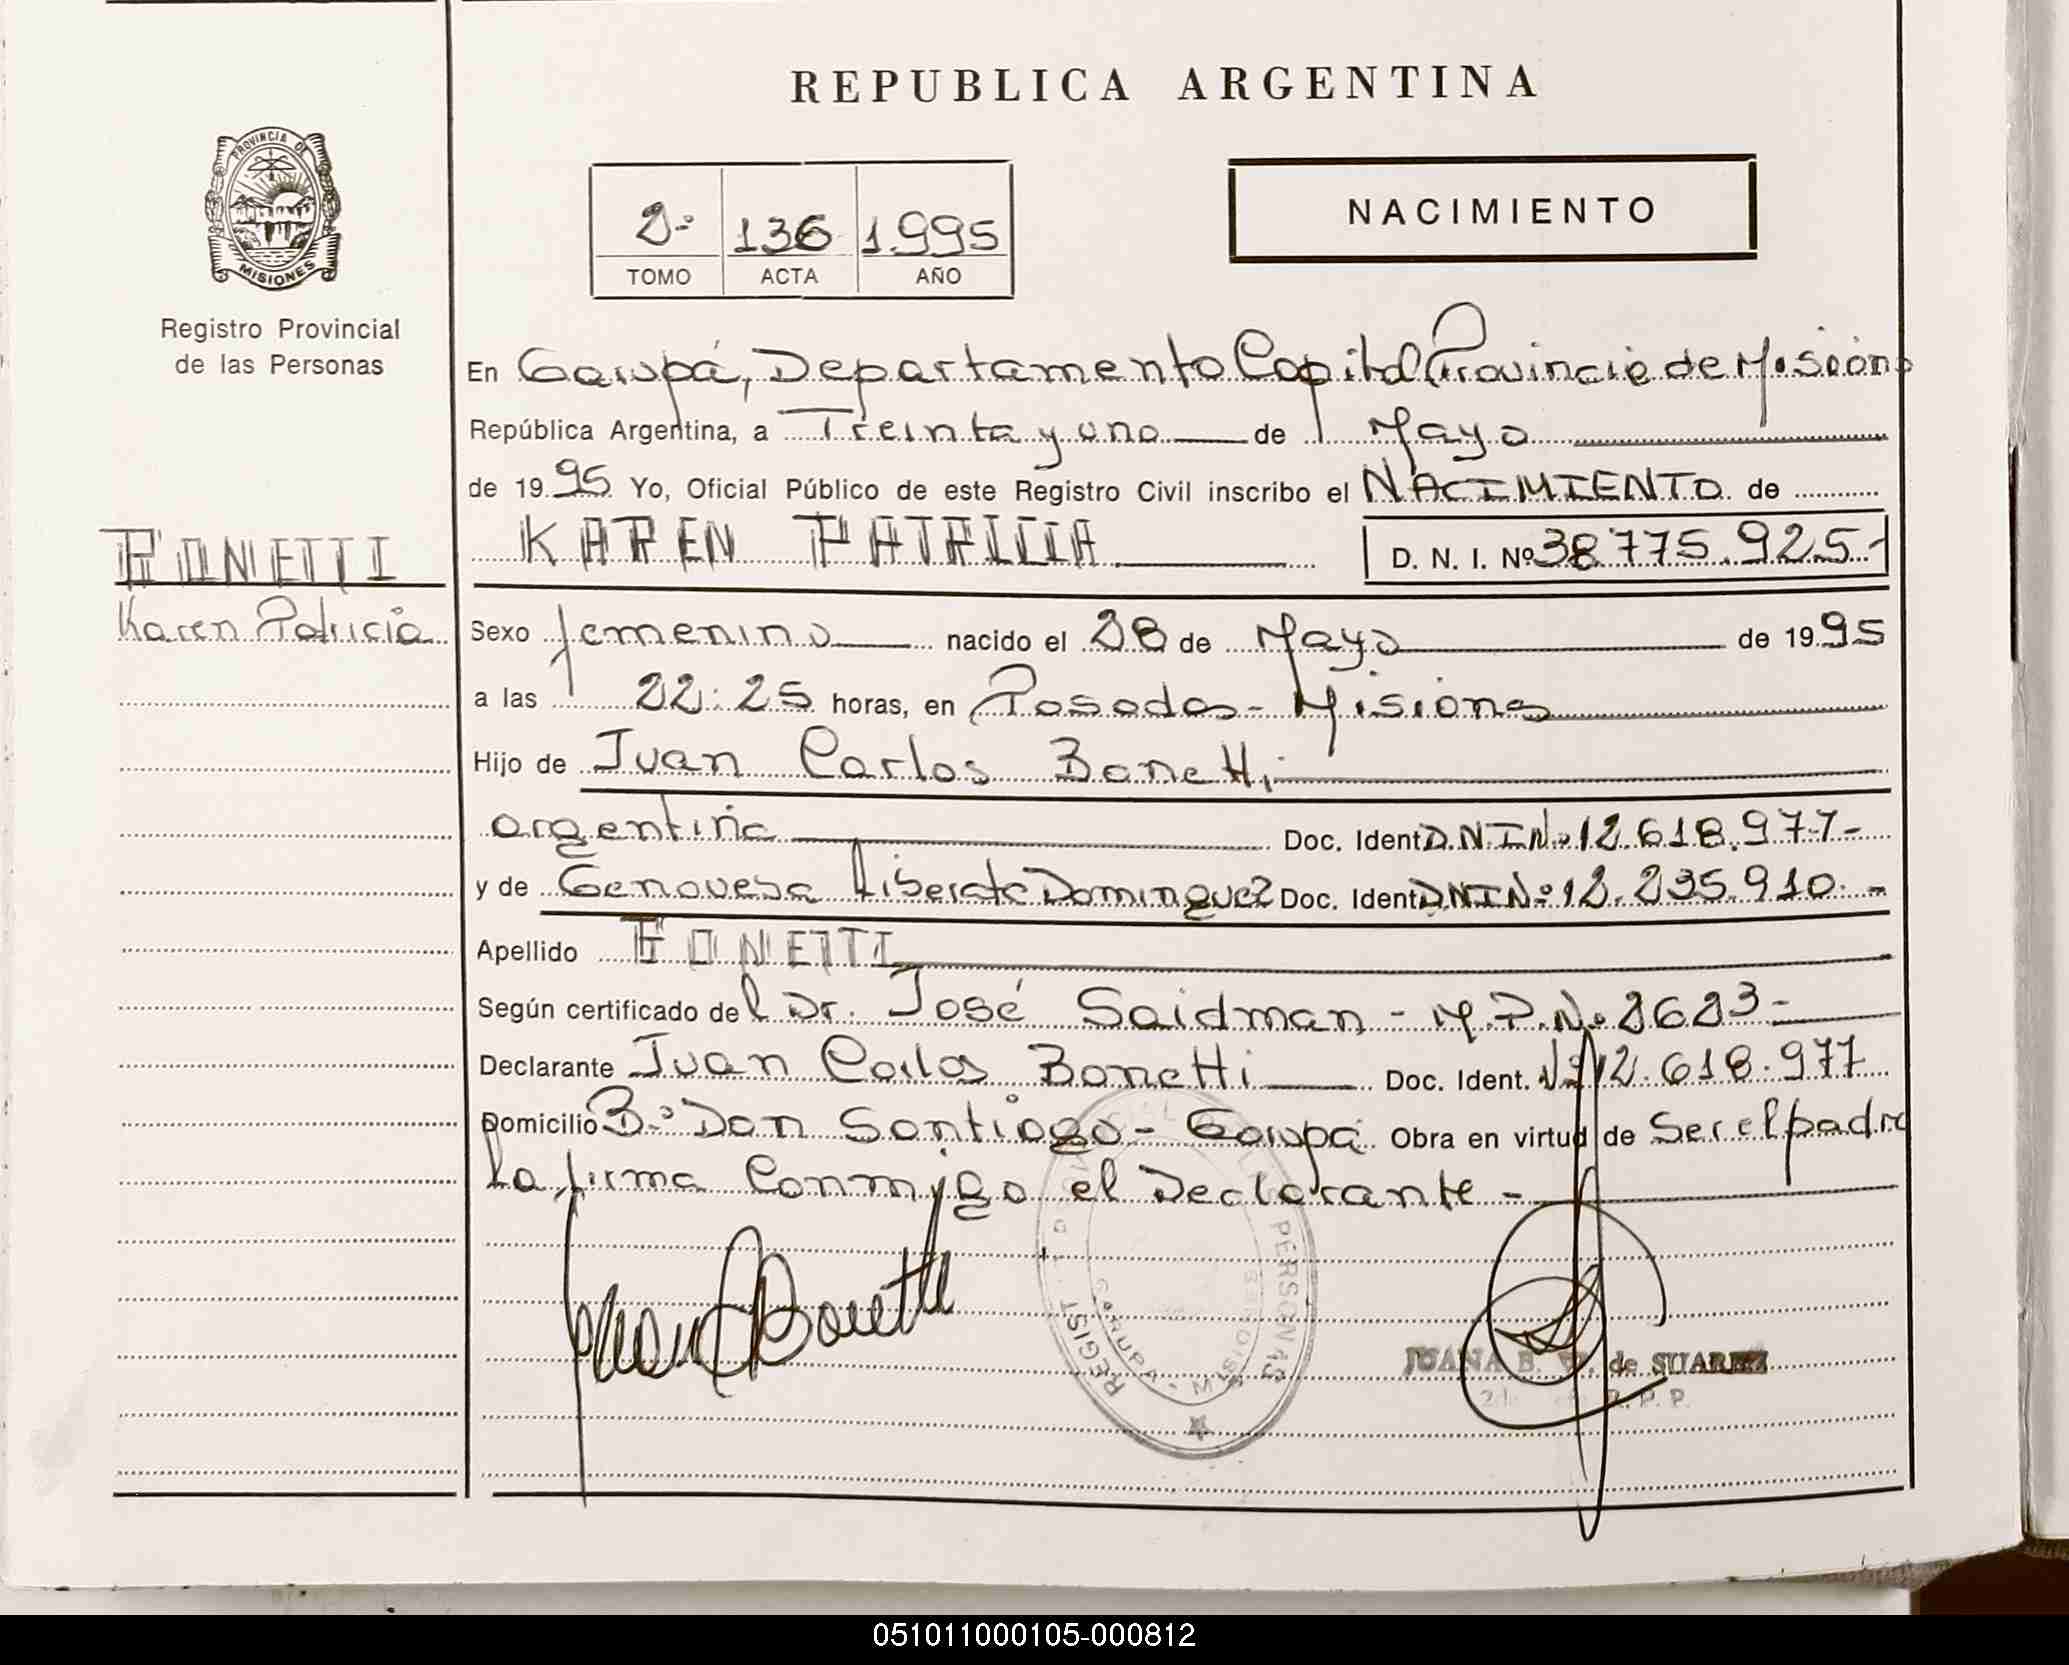 REPUBLICA ARGENTINA
PROVINCIA DE
MISIONES
Registro Provincial
de las Personas
2º 136 1.995
TOMO ACTA AÑO
NACIMIENTO
En Garupá, Departamento Capital Provincia de Misiones
República Argentina, a Treinta y uno de Mayo
de 1995 Yo, Oficial Público de este Registro Civil inscribo el NACIMIENTO de
KAREN PATRICIA D. N. I. Nº 38.775.925-
BONETTI
Karen Patricia
Sexo femenino nacido el 28 de Mayo de 1995
a las 22:25 horas, en Posadas - Misiones
Hijo de Juan Carlos Bonetti
argentina Doc. Ident. D.N.I.Nº 12.618.977-
y de Genovesa Liberata Dominguez Doc. Ident. DNINº 12.235.910. -
Apellido BONETTI
Según certificado del Dr. José Saidman - M.P.Nº 2623-
Declarante Juan Carlos Bonetti Doc. Ident. Nº 12.618.977
Domicilio Bº Don Santiago - Garupá Obra en virtud de Ser el padre
La firma Conmigo el Declarante -
Juan C Bonetti
REGIST PERSONAS
GARUPA - MISIONES
JUANA B. de SUAREZ
R. P. P.
051011000105-000812